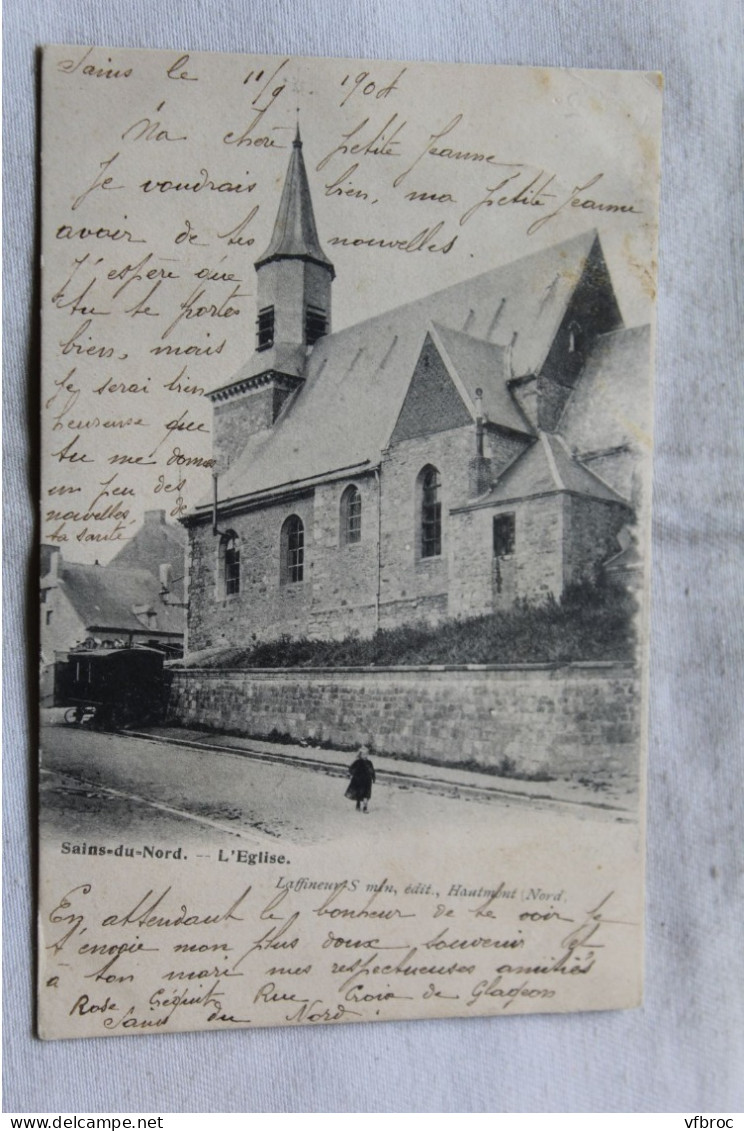 Sains le 11/9 1904
Ma chère petite Jeanne
Je voudrais bien, ma petite Jeanne
avoir de tes nouvelles.
J'espère que
tu te portes
bien, mais
je serai bien
heureuse que
tu me donnes
un peu des
nouvelles de
ta santé
Sains-du-Nord. -- L'Eglise.
Laffineur-S min, édit., Hautmont (Nord.
En attendant le bonheur de te voir je
t'envoie mon plus doux souvenir et
à ton mari mes respectueuses amitiés
Rose Rue Croix de Glageon
Sains du Nord
vfbroc
www.delcampe.net